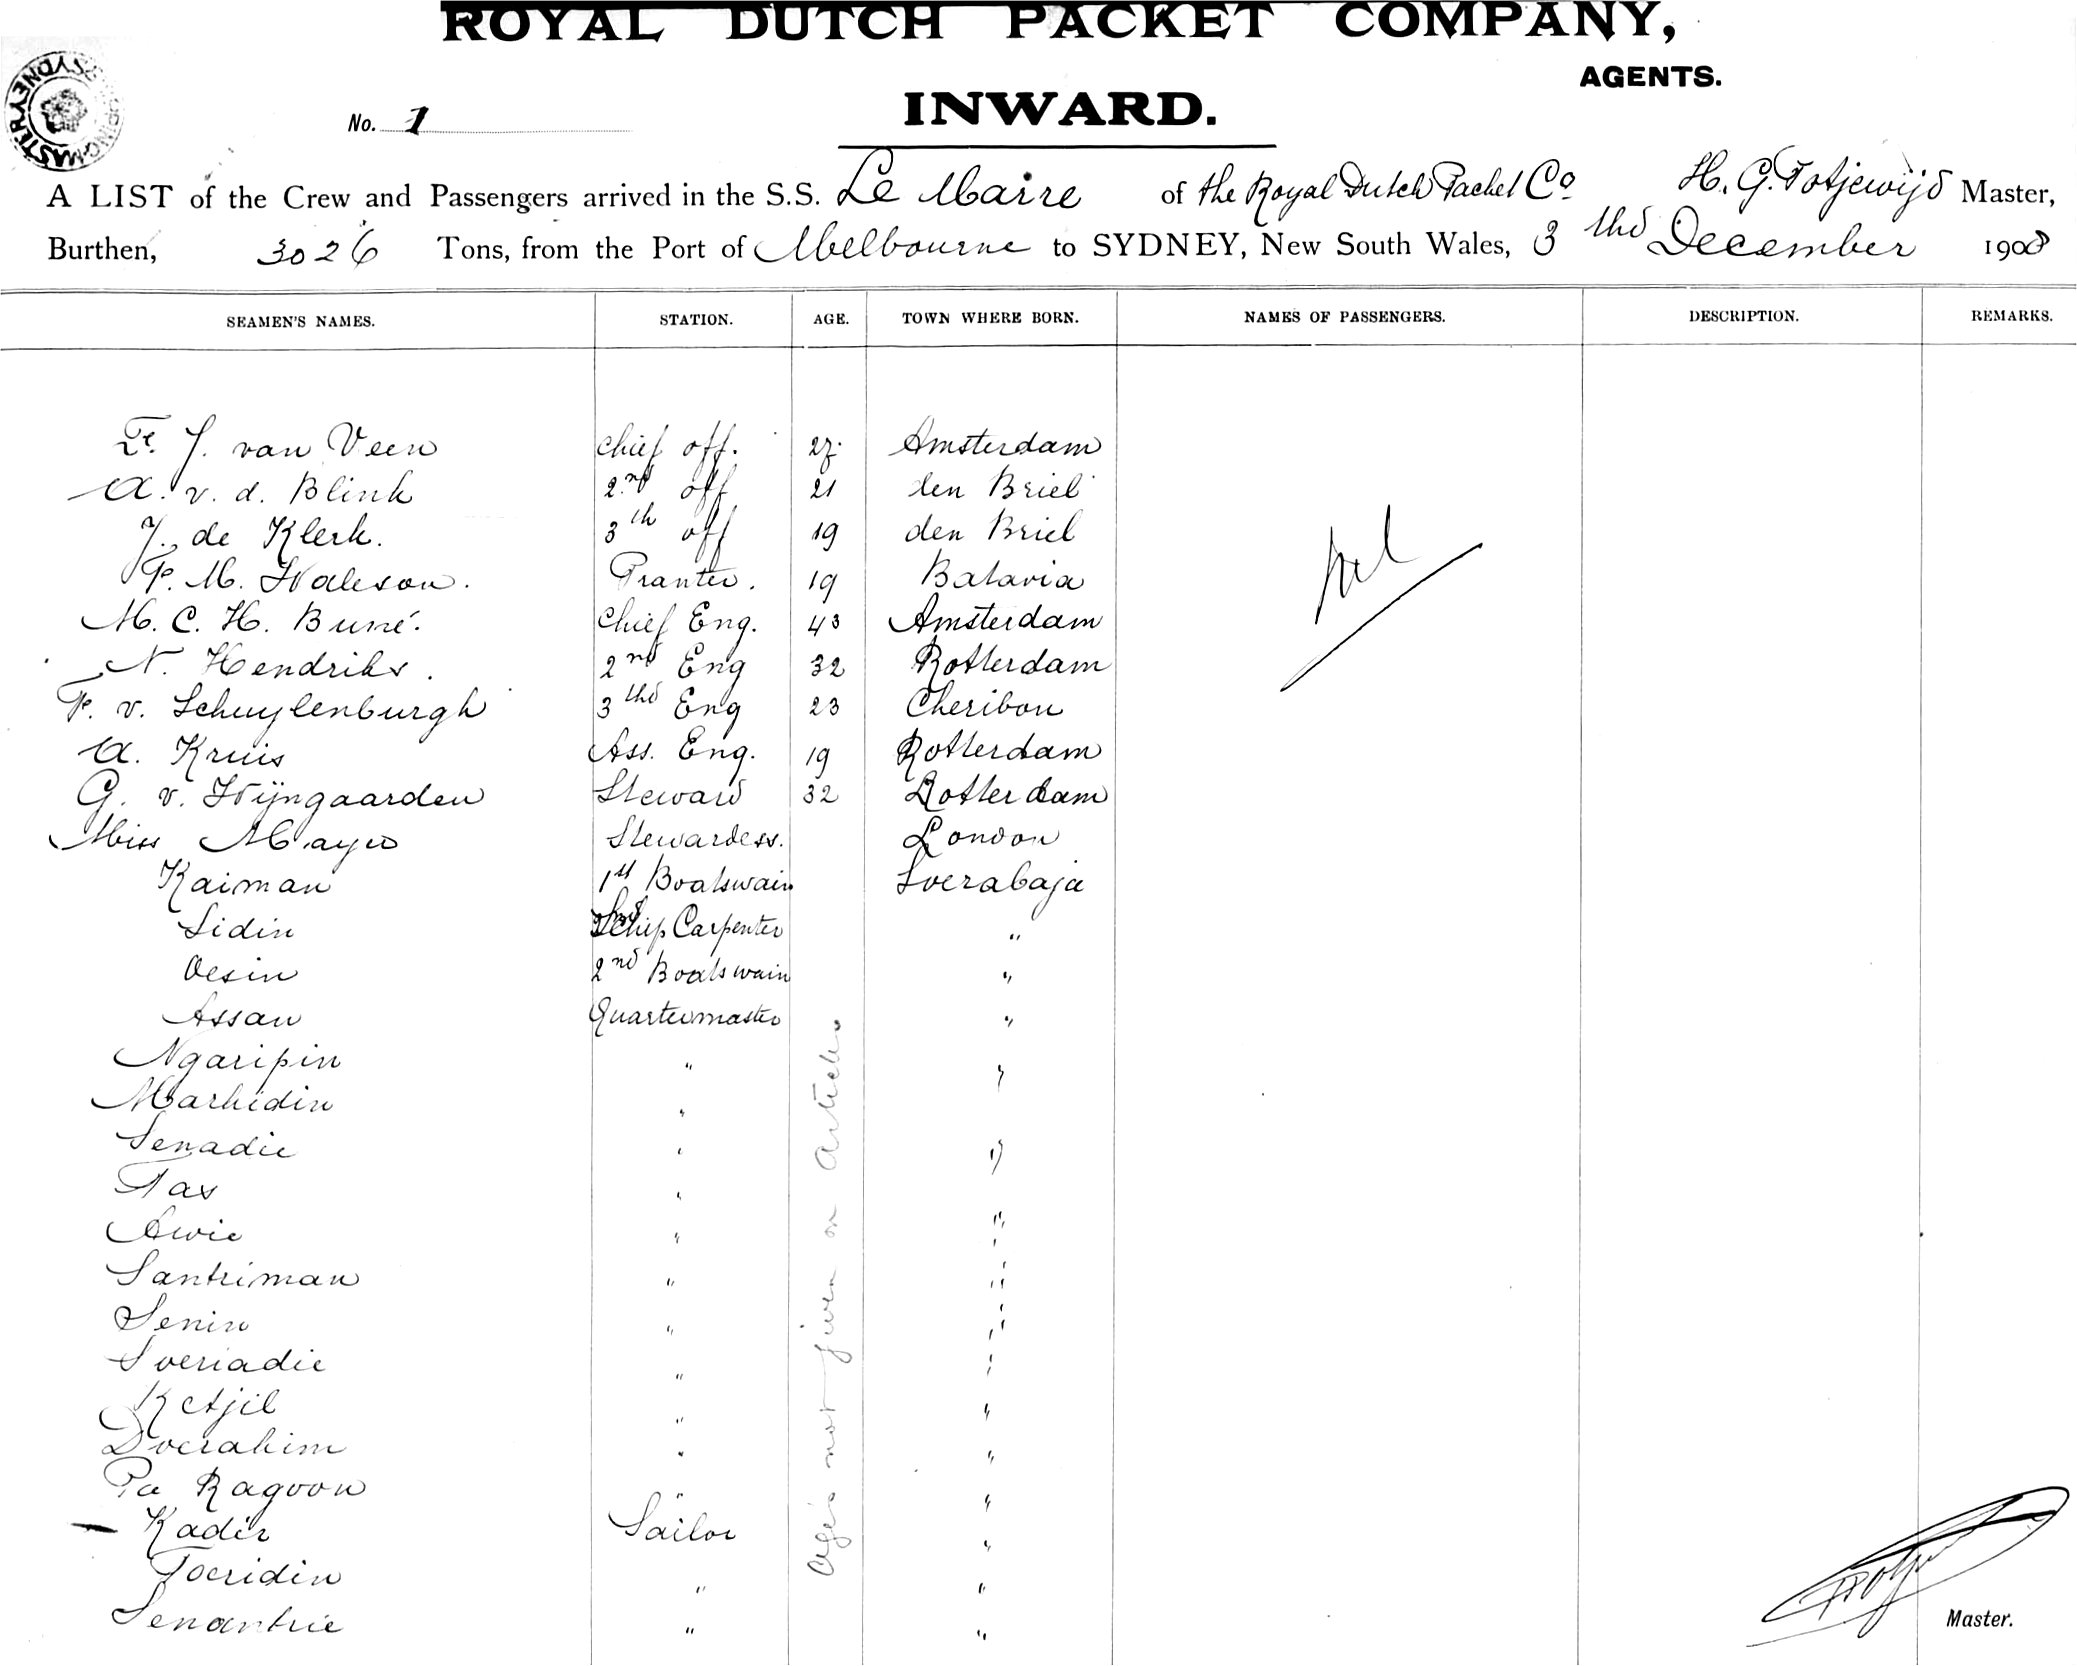 ROYAL DUTCH PACKET COMPANY,
AGENTS.
INWARD.
No. 1
A LIST of the Crew and Passengers arrived in the S.S. Le Maire of the Royal Dutch Packet Co H. G. Potjewijd Master,
Burthen, 3026 Tons, from the Port of Melbourne to SYDNEY, New South Wales, 3 thd December 1908
SEAMEN'S NAMES. STATION. AGE. TOWN WHERE BORN. NAMES OF PASSENGERS. DESCRIPTION. REMARKS.
J. van Veen chief off. 27 Amsterdam
A. v. d. Blink 2nd off 21 den Briel
J. de Klerk. 3th off 19 den Briel
P. M. Waleson. 19 Batavia
M. C. H. Buné. Chief Eng. 43 Amsterdam
N. Hendriks. 2nd Eng 32 Rotterdam
F. v. Schuylenburgh 3thd Eng 23 Cheribon
A. Kruis Ass. Eng. 19 Rotterdam
G. v. Wijngaarden Steward 32 Rotterdam
Miss Mayo Stewardess. London
Kaiman 1st Boatswain Soerabaja
Sidin Schip Carpenter "
Oesin 2nd Boatswain "
Assan Quartermaster "
Ngaripin " "
Marhidin " "
Senadie " "
Tas " "
Awie " "
Santriman " "
Senin " "
Soeriadie " "
Ketjil " "
Doerahim " "
Pa Ragoon " "
Kadir Sailor "
Toeridin " "
Senantrie " "
Age's not given on Articles
Nil
Master.